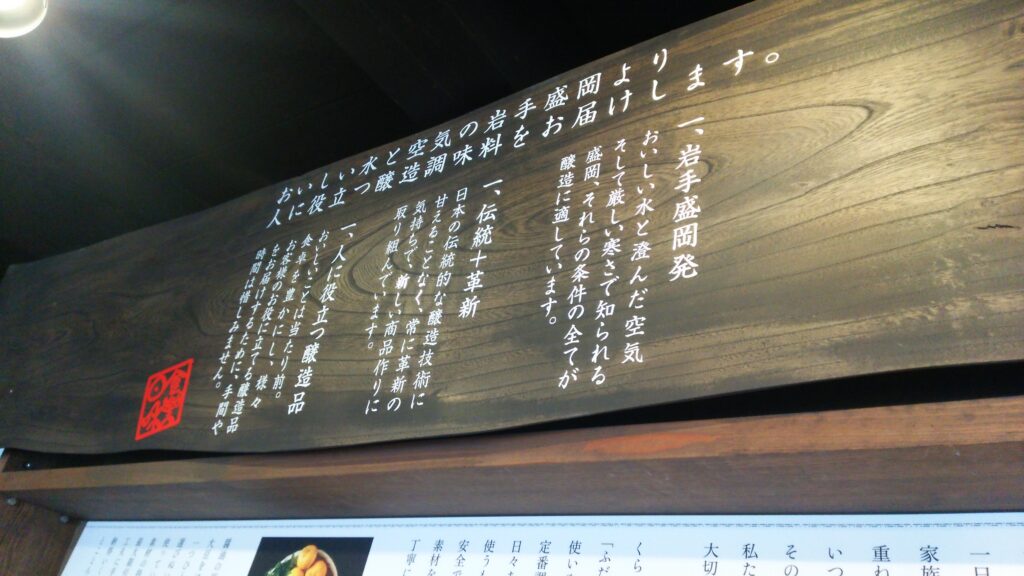 おいしい水と空気の岩手盛岡より
人に役立つ醸造調味料をお届けします。
一、岩手盛岡発
おいしい水と澄んだ空気
そして厳しい寒さで知られる
盛岡、それらの条件の全てが
醸造に適しています。
一、伝統＋革新
日本の伝統的な醸造技術に
甘えることなく、常に革新の
気持ちで、新しい商品作りに
取り組んでいます。
一、人に役立つ醸造品
おいしいことは当たり前。
食卓を豊かにし、様々
お客様のお役に立てる醸造品
をお届けするために、手間や
時間は惜しみません。
一日
家族
重ね
いつ
その
私た
大切
くら
「ふだ
使い
定番調
日々
使うも
安全で
素材を
丁寧に